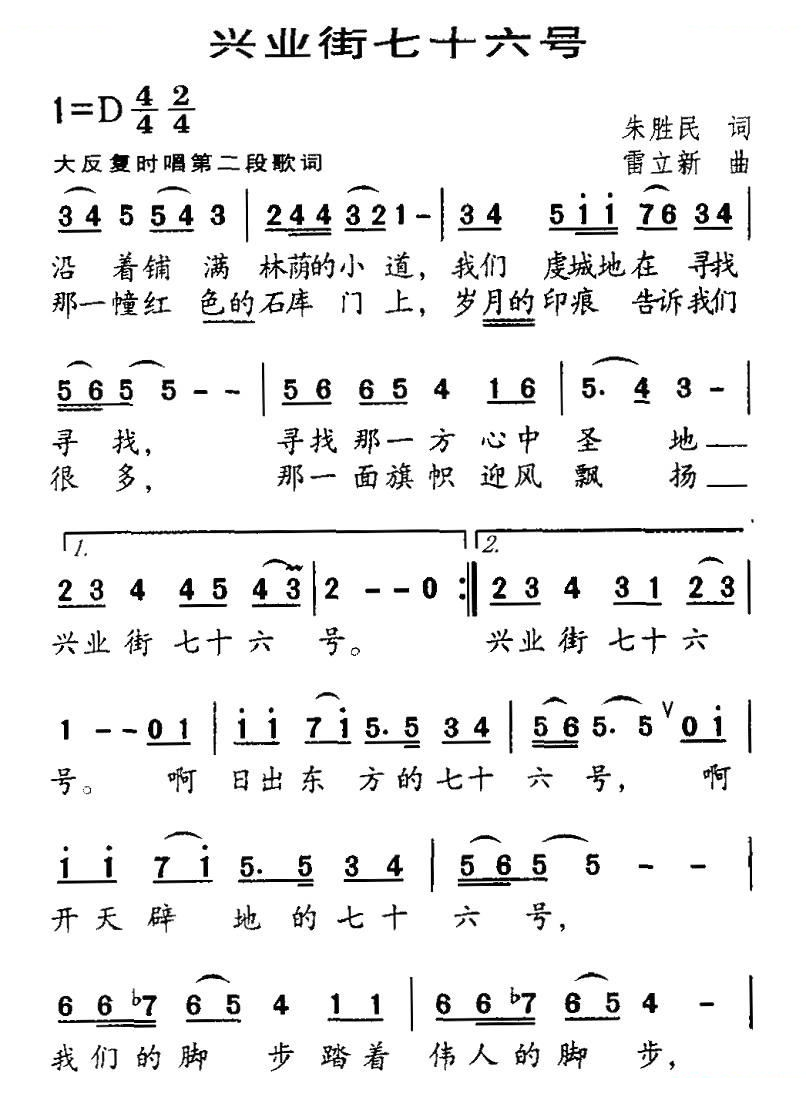 兴业街七十六号
1=D 4/4 2/4
朱胜民 词
大反复时唱第二段歌词
雷立新 曲
3 4 5 5 4 3 | 2 4 4 3 2 1 - | 3 4 5 i i 7 6 3 4 |
沿着铺满林荫的小道，我们虔城地在寻找
那一幢红色的石库门上，岁月的印痕告诉我们
5 6 5 5 - - | 5 6 6 5 4 1 6 | 5. 4 3 - |
寻找，寻找那一方心中圣地
很多，那一面旗帜迎风飘扬
1. 2.
2 3 4 4 5 4 3 | 2 - - 0 :‖ 2 3 4 3 1 2 3 |
兴业街七十六号。兴业街七十六
1 - - 0 1 | i i 7 i 5. 5 3 4 | 5 6 5. 5 ∨ 0 i |
号。啊日出东方的七十六号，啊
i i 7 i 5. 5 3 4 | 5 6 5 5 - - |
开天辟地的七十六号，
6 6 ♭7 6 5 4 1 1 | 6 6 ♭7 6 5 4 - |
我们的脚步踏着伟人的脚步，